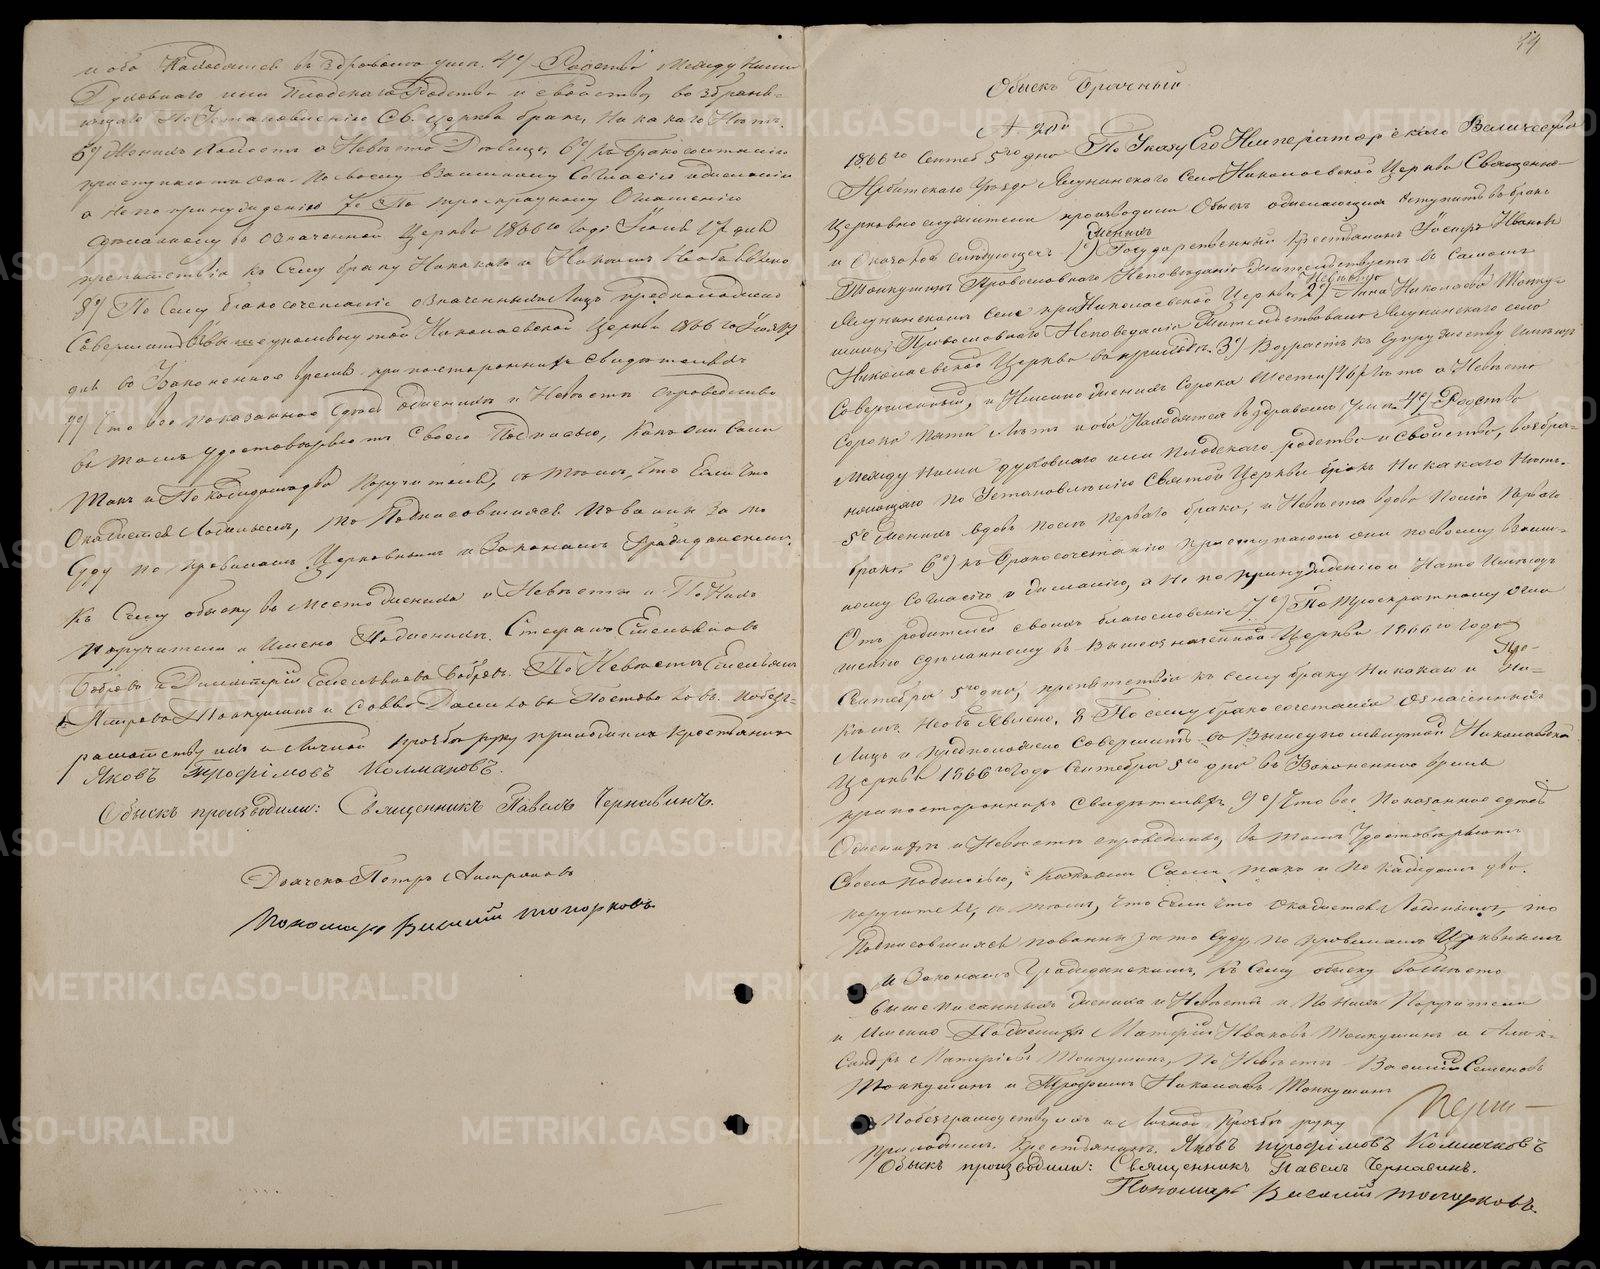 и оба находятся въ здравомъ умѣ. 4е) Родства между ними
Духовнаго или плотскаго родства и свойства, возбраня-
ющаго по установленію Св. Церкви бракъ, никакого нѣтъ.
5е) Женихъ холостъ а Невѣста Дѣвица, 6е) къ бракосочетанію
приступаютъ они по своему взаимному согласію и желанію
а не по принужденію 7е По троекратному оглашенію
сдѣланному въ означенной Церкви 1866го года Іюля 17 дня
препятствія къ сему браку никакого и никѣмъ не объявлено
8е) По сему бракосочетаніе означенныхъ лицъ предположено
совершить въ вышеупомянутой Николаевской Церкви 1866го Іюля
дня въ законное время при постороннихъ свидѣтеляхъ
9е) Что все показанное здѣсь о женихѣ и невѣстѣ справедливо
въ томъ удостовѣряютъ своею подписью, какъ они сами
такъ и по каждомъ два поручителя, съ тѣмъ, что если что
окажется ложнымъ, то подписавшіеся повинны за то
суду по правиламъ Церковнымъ и законамъ Гражданскимъ.
Къ сему обыску вмѣсто жениха и Невѣсты и по нихъ
поручители а именно по женихѣ Стефанъ Емельяновъ
Бобровъ и Димитрій Емельяновъ Бобровъ. По Невѣстѣ
Топкушинъ и Савва Даниловъ по безг-
рамотству ихъ и личной прозьбѣ руку приложилъ крестьянинъ
Яковъ Трофімовъ Колмаковъ.
Обыскъ производили: Священникъ Павелъ Чернавинъ.
Дьячекъ Петръ
Пономарь Василій Топорковъ
Обыскъ Брачный
№ 20й
1866го Сентяб 5го дня По Указу Его Императорскаго Величества
Ирбитскаго уѣзда Ляпунинскаго села Николаевской Церкви Священно-
церковнослужители производили обыскъ о желающихъ вступить въ бракъ
и оказалось слѣдующее: 1е) Женихъ Государственный крестьянинъ Іовъ Ивановъ
Топкушинъ Православнаго исповѣданія жительствуетъ въ самомъ
Ляпунинскомъ селе при Николаевской Церкви, 2е) Невѣста Анна Николаева Топку-
шина, Православнаго исповеданія жительствовала Ляпунинскаго села
Николаевской Церкви въ приходѣ. 3е) Возрастъ къ супружеству имѣютъ
совершенный, и именно женихъ сорока шести /46/ лѣтъ а невѣста
сорока пяти лѣтъ и оба находятся въ здравомъ умѣ. 4е) Родства
между ними духовнаго или плотскаго родства и свойства, возбра-
няющаго по установленію Святой Церкви бракъ никакого нѣтъ.
5е Женихъ вдовъ послѣ перваго брака, и невѣста вдова послѣ перваго
брака 6е) къ бракосочетанію приступаютъ они по своему взаим-
ному согласію и желанію, а не по принужденію и на то имѣютъ
отъ родителей своихъ благословеніе 7е) По троекратному огла-
шенію сдѣланному въ вышеозначенной Церкви 1866го года
Сентября 5го дня, препятствія къ сему браку никакого и ни-
кѣмъ необъявлено. 8 По сему бракосочетаніе означенныхъ
лицъ и предположено совершить въ вышеупомянутой Николаевской
Церкви 1866го года Сентября 5го дня въ законное время
при постороннихъ свидѣтеляхъ 9е) Что все показанное здѣсь
о женихѣ и невѣстѣ справедливо, въ томъ удостовѣряютъ
своею подписью, какъ они сами, такъ и по каждомъ два
поручителя, съ тѣмъ, что если что окажется ложнымъ, то
подписавшіеся повинны за то суду по правиламъ Церковнымъ
и законамъ Гражданскимъ, къ сему обыску вмѣсто
выше писанныхъ жениха и Невѣсты и по нихъ Поручители
и именно по женихѣ Ивановъ Топкушинъ и Алек-
сандръ Топкушинъ, по Невѣстѣ Василій Семеновъ
Топкушинъ и Трофимъ Николаевъ Топкушинъ
по безграмотству ихъ и личной прозьбѣ руку
приложилъ крестьянинъ Яковъ Трофімовъ Колмаковъ
Обыскъ производили: Священникъ Павелъ Чернавинъ.
Пономарь Василій Топорковъ.